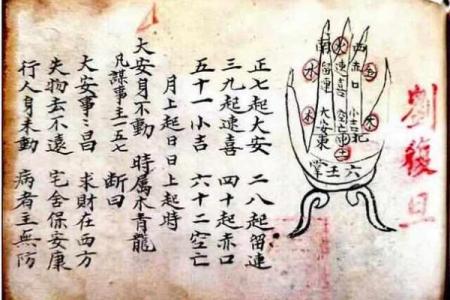 劉復旦
西
赤口
金
火
速喜
南
留連
木
小吉北
水
大安東
空亡中
土
六壬掌
正七起大安 二八起留連
三九起速喜 四十起赤口
五十一小吉 六十二空亡
月上起日日上起時
大安身不動 時属木青龍
凡謀事主一五七 断曰
大安事昌 求財在西方
失物去不遠 宅舍保安康
行人身未動 病者主無防